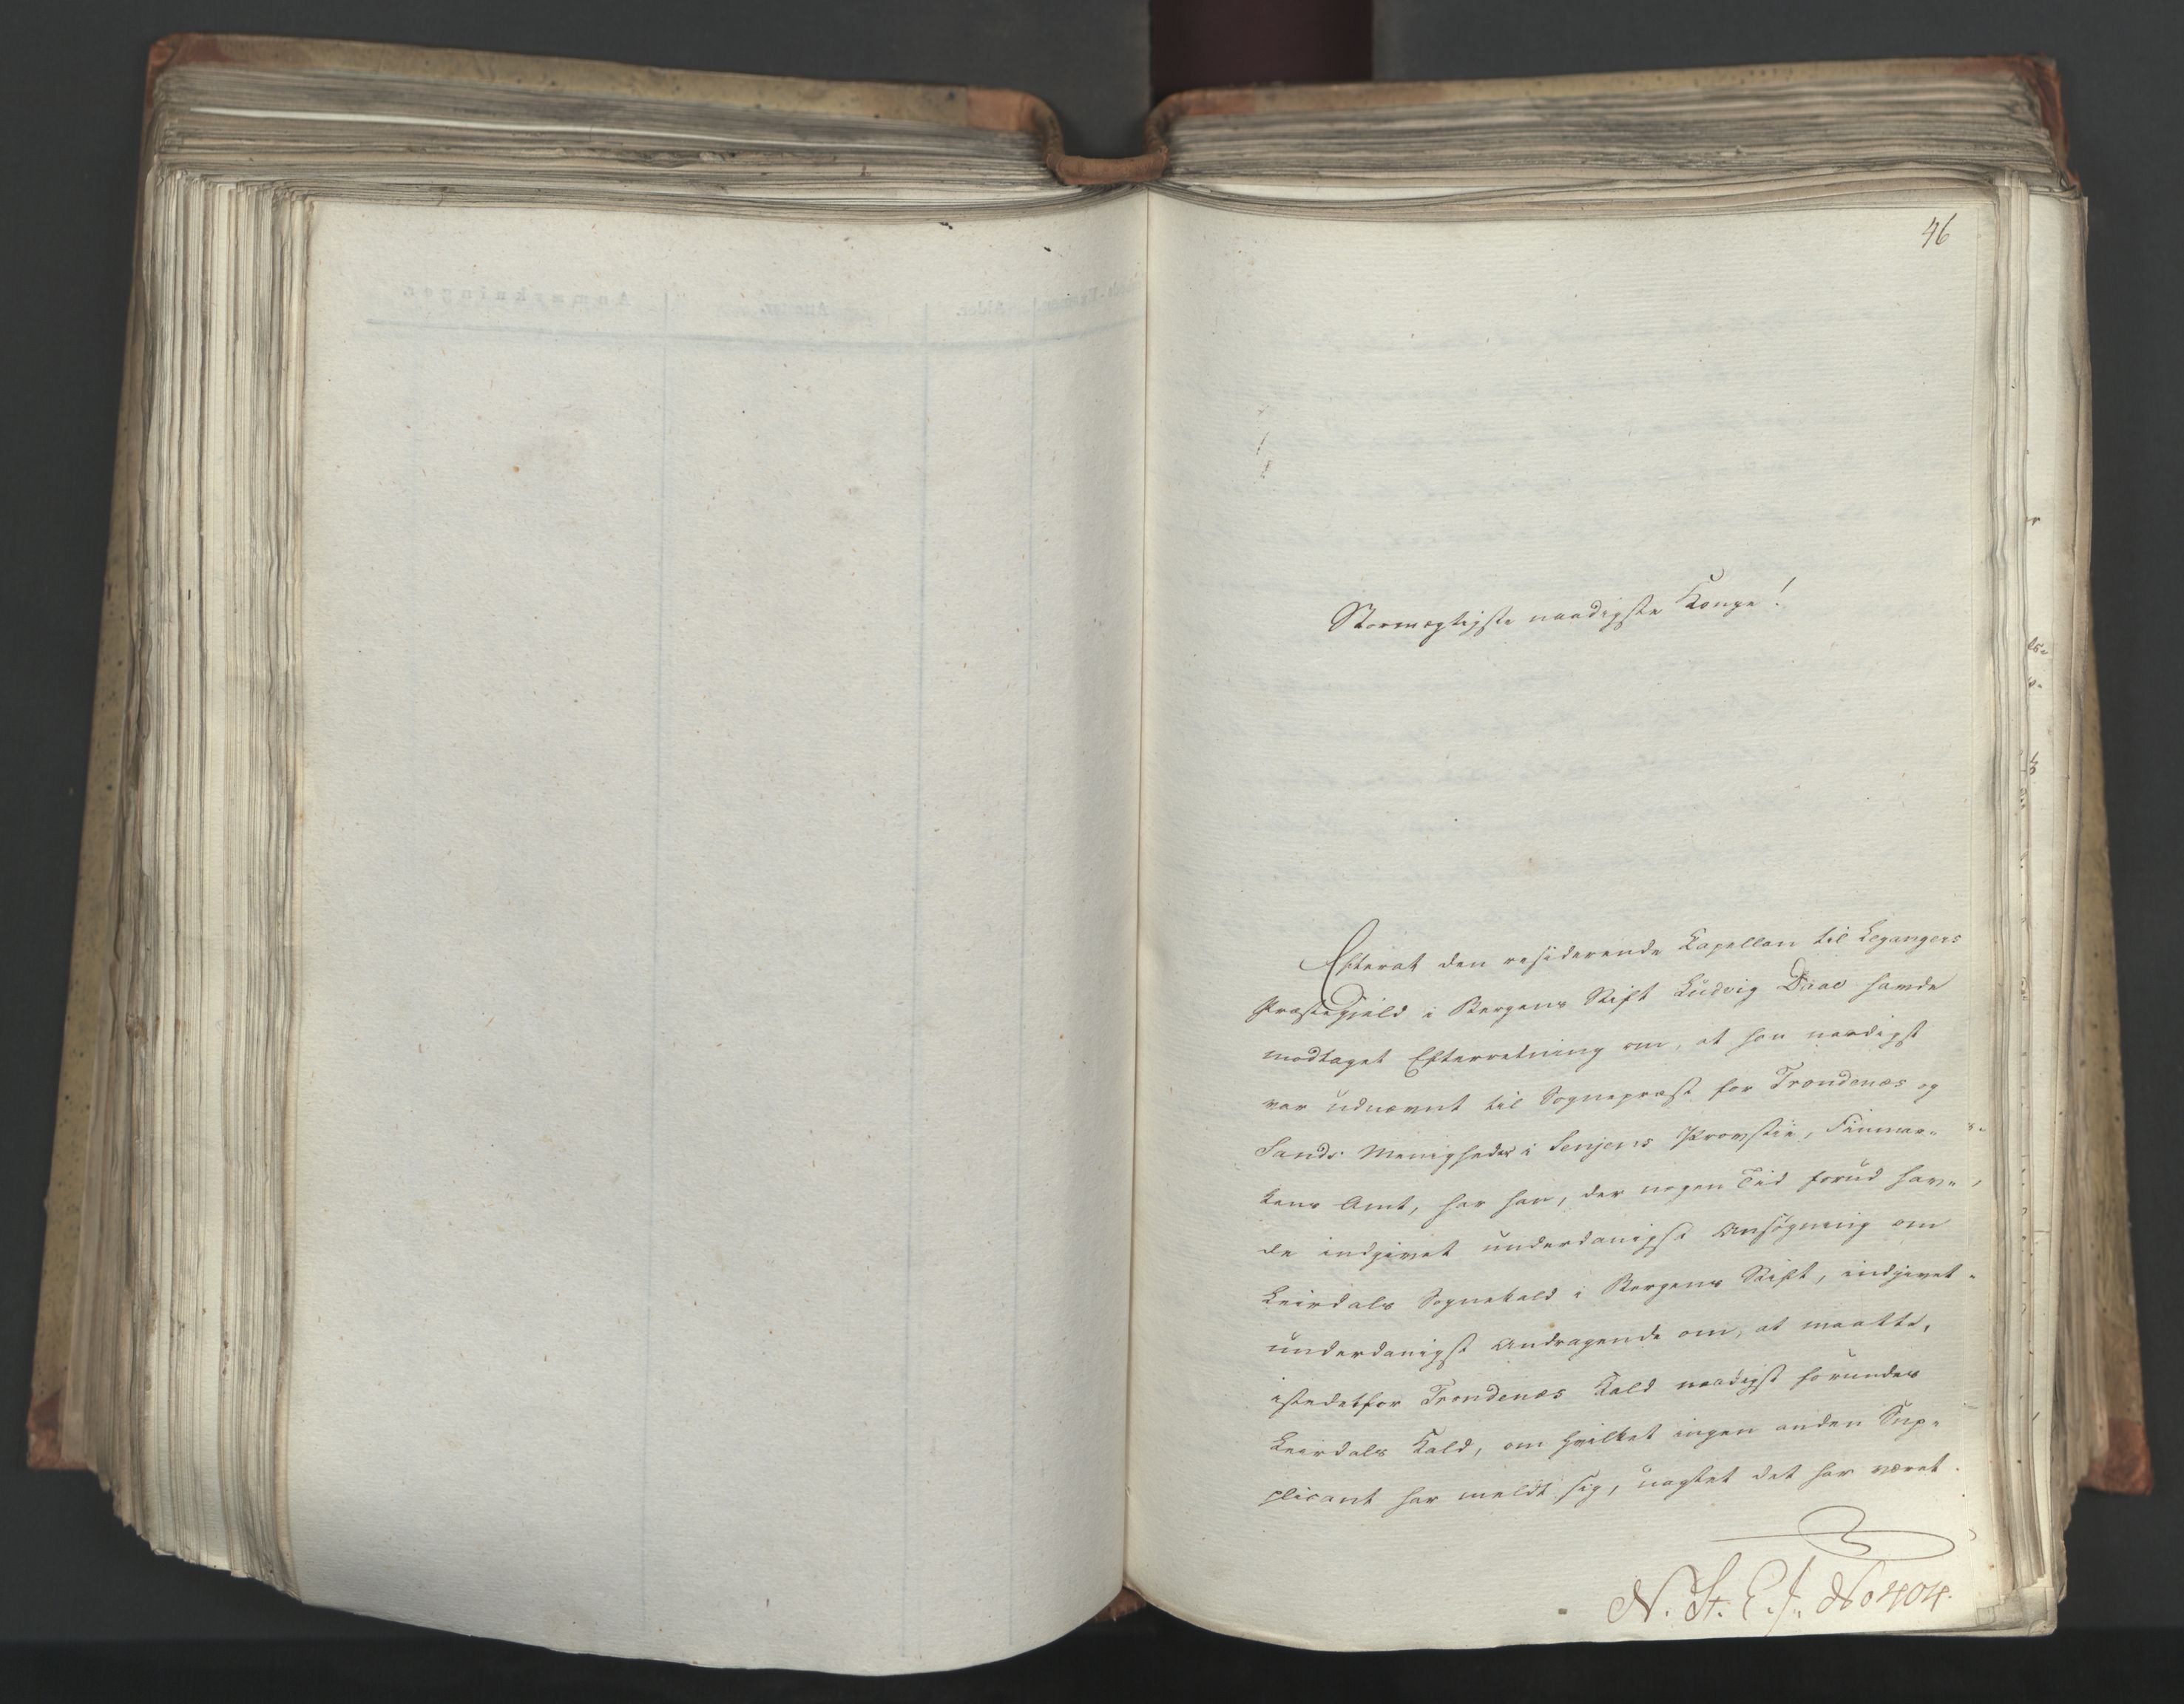 46
Stormægtigste naadigste Konge!
Efterat den residerende Kapellan til Legangers
Præstegjeld i Bergens Stift Ludvig Daae havde
modtaget Efterretning om, at han naadigst
var udnævnt til Sognepræst for Trondenæs og
Sands Menigheder i Senjens Provstie, Finmar-
kens Amt, har han, der nogen Tid forud hav-
de indgivet underdanigst Ansøgning om
Leirdals Sognekald i Bergens Stift, indgivet
underdanigst Andragende om, at maatte,
istedetfor Trondenæs Kald naadigst forundes
Leirdals Kald, om hvilket ingen anden Sup-
plicant har meldt sig, uagtet det har været
N. St. E. J. No 404.